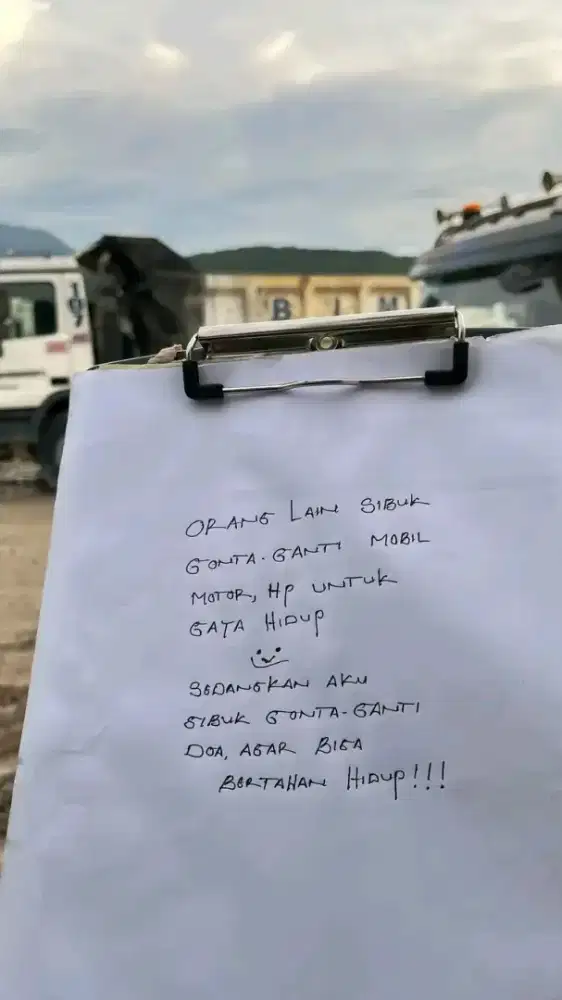 107
B I M
ORANG LAIN SIBUK
GONTA-GANTI MOBIL
MOTOR, HP UNTUK
GAYA HIDUP
SEDANGKAN AKU
SIBUK GONTA-GANTI
DOA, AGAR BISA
BERTAHAN HIDUP!!!